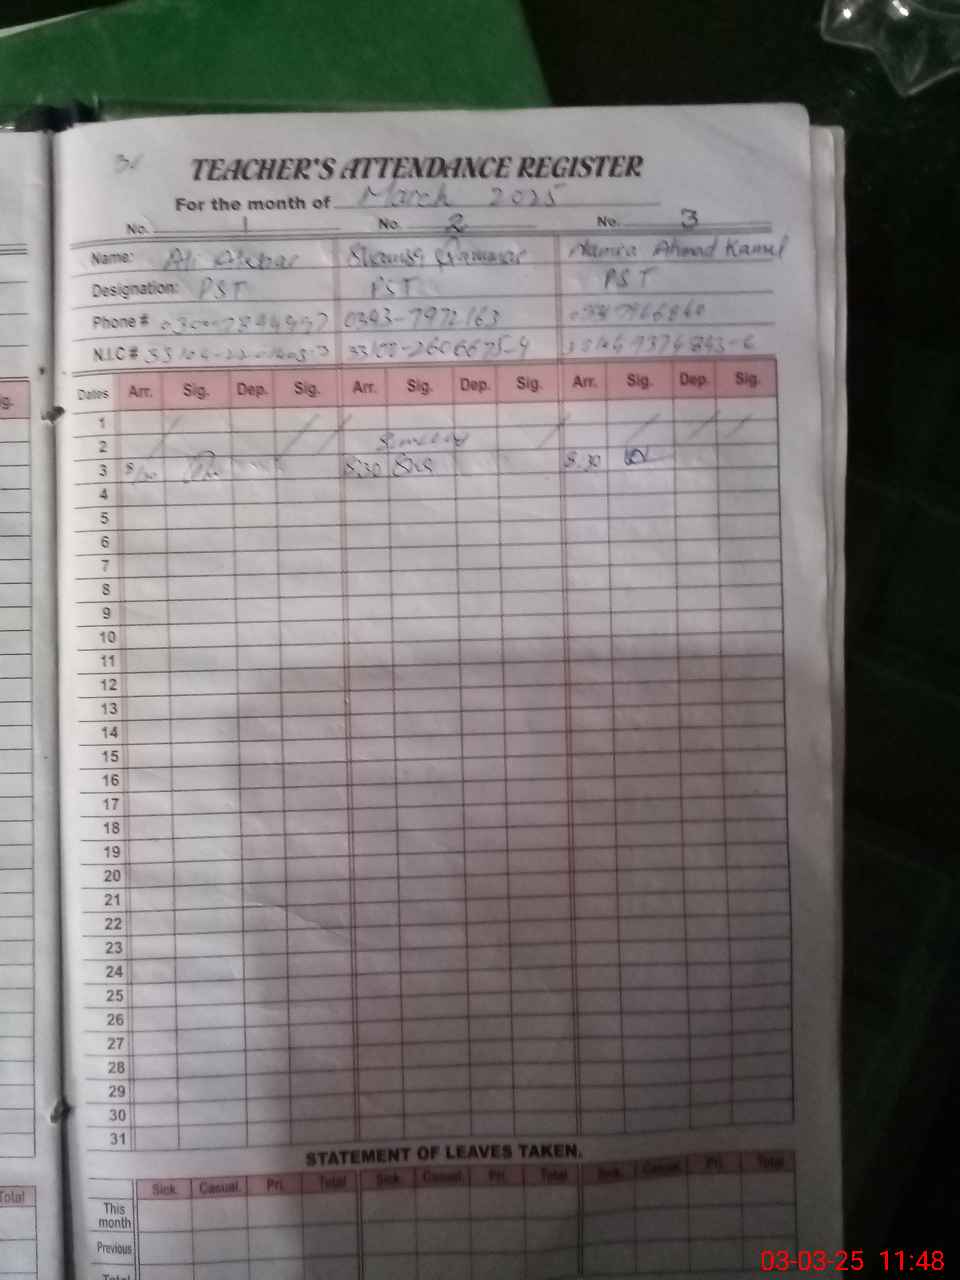 TEACHER'S ATTENDANCE REGISTER
For the month of March 2025
No. 1 No. 2 No. 3
Name: Ali Akbar Namra Ahmad Kamal
Designation: PST PST PST
Phone# 0343-7972163
N.I.C# 33100-2606675-9
Dates Arr. Sig. Dep. Sig. Arr. Sig. Dep. Sig. Arr. Sig. Dep. Sig.
ig.
1
2 Sunday
3 8/30 8:30 8:30
4
5
6
7
8
9
10
11
12
13
14
15
16
17
18
19
20
21
22
23
24
25
26
27
28
29
30
31
STATEMENT OF LEAVES TAKEN.
Sick. Casual. Pri. Total Sick. Casual. Pri. Total Sick. Casual. Pri. Total
Total
This
month
Previous
Total
03-03-25 11:48